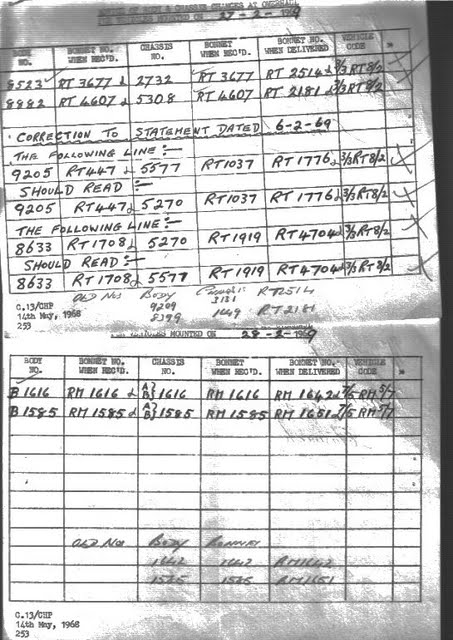 NOTES OF BODY & CHASSIS CHANGES AT OVERHAUL
FOR VEHICLES MOUNTED ON 27-2-1969
BODY NO. BONNET NO. WHEN REC'D. CHASSIS NO. BONNET WHEN REC'D. BONNET NO. WHEN DELIVERED VEHICLE CODE
8523 RT 3677 2732 RT 3677 RT 2514 2/3 RT 8/2
8882 RT 4607 5308 RT 4607 RT 2181 3/3 RT 8/2
CORRECTION TO STATEMENT DATED 6-2-69
THE FOLLOWING LINE:-
9205 RT 447 5577 RT 1037 RT 1776 3/3 RT 8/2
SHOULD READ:-
9205 RT 447 5270 RT 1037 RT 1776 3/3 RT 8/2
THE FOLLOWING LINE:-
8633 RT 1708 5270 RT 1919 RT 4704 3/3 RT 8/2
SHOULD READ:-
8633 RT 1708 5577 RT 1919 RT 4704 3/3 RT 8/2
OLD Nos BODY CHASSIS: RT 2514
9209 3131
8399 1649 RT 2181
C.13/CHP
14th May, 1968
253
FOR VEHICLES MOUNTED ON 28-2-1969
BODY NO. BONNET NO. WHEN REC'D. CHASSIS NO. BONNET WHEN REC'D. BONNET NO. WHEN DELIVERED VEHICLE CODE
B 1616 RM 1616 A} B} 1616 RM 1616 RM 1642 7/5 RM 5/7
B 1585 RM 1585 A} B} 1585 RM 1585 RM 1651 7/5 RM 7/7
OLD Nos BODY BONNET
1642 1642 RM 1642
1535 1535 RM 1651
C.13/CHP
14th May, 1968
253